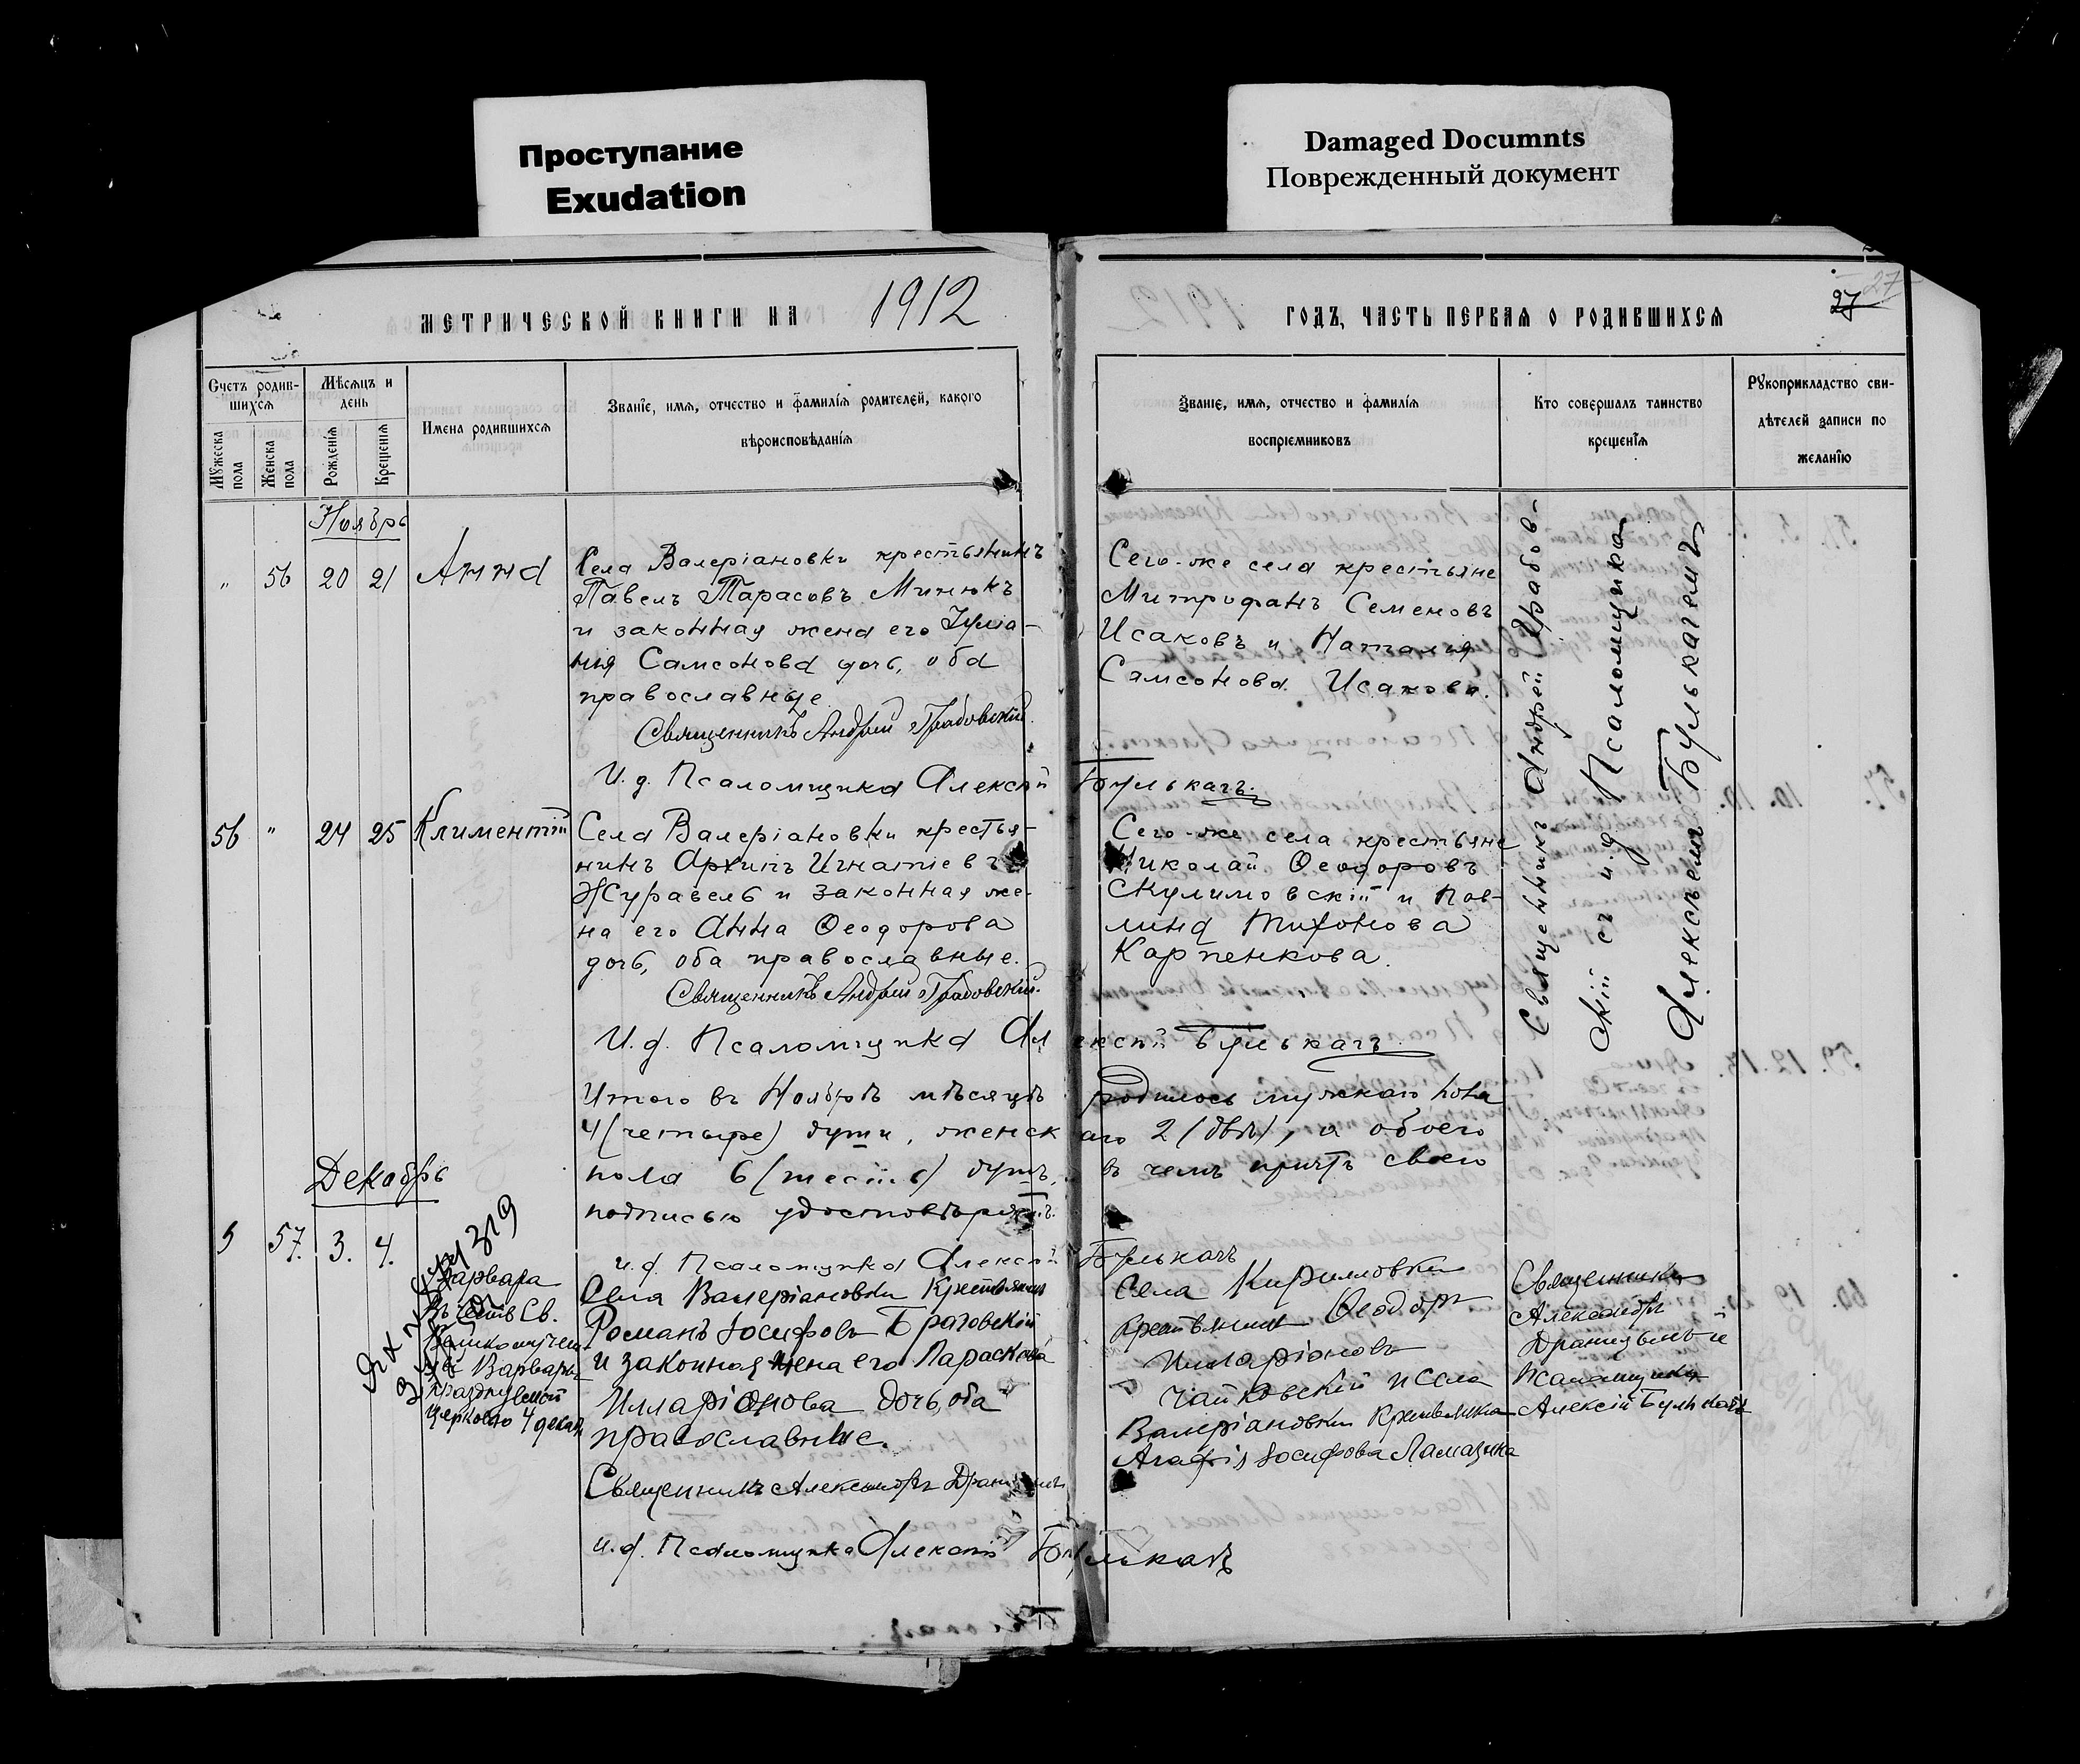 Проступание
Exudation
Damaged Documnts
Поврежденный документ
МЕТРИЧЕСКОЙ КНИГИ НА 1912
Счетъ родив-
шихся
Мѣсяцъ и
день
Имена родившихся
Званіе, имя, отчество и фамилія родителей, какого
вѣроисповѣданія
Мужеска
пола
Женска
пола
Рожденія
Крещенія
Ноябрь
" 56 20 21 Анна
Села Валеріановки крестьянинъ
Павелъ Тарасовъ Минюкъ
и законная жена его Іулiа-
нія Самсонова дочь, оба
православные
Священникъ Андрей Грабовскій
И. д. Псаломщика Алексѣй Булькачъ.
56 " 24 25 Климентій
Села Валеріановки крестья-
нинъ Архипъ Игнатіевъ
Журавель и законная же-
на его Анна Ѳеодорова
дочь, оба православные.
Священникъ Андрей Грабовскій.
И. д. Псаломщика Алексѣй Булькачъ.
Итого въ Ноябрѣ мѣсяцѣ родилось мужскаго пола
4 (четыре) души, женскаго 2 (двѣ), а обоего
пола 6 (шесть) душъ, въ чемъ причтъ своею
подписью удостовѣряетъ.
и. д. Псаломщика Алексѣй Булькачъ
Декабрь
57. 3. 4.
Варвара
въ честь Св.
Великомучен.
Варвары
празднуемой
Церковью 4 декаб.
319
Села Валеріановки Крестьянинъ
Романъ Іосифовъ Браговскій
и законная жена его Параскева
Илларіонова дочь, оба
православные.
Священникъ Александръ
и. д. Псаломщика Алексѣй Булькачъ
27
27
ГОДЪ, ЧАСТЬ ПЕРВАЯ О РОДИВШИХСЯ
Званіе, имя, отчество и фамилія
воспріемниковъ
Кто совершалъ таинство
крещенія
Рукоприкладство сви-
дѣтелей записи по
желанію
Сего-же села крестьяне
Митрофанъ Семеновъ
Исаковъ и Наталія
Самсонова Исакова.
Сего-же села крестьяне
Николай Ѳеодоровъ
Скулимовскій и Пав-
лина Тихонова
Карпенкова.
Священникъ Андрей Грабов-
скій съ и. д. Псаломщика
Алексѣемъ Булькачемъ
Села Кирилловки
крестьянинъ Ѳеодоръ
Илларіоновъ
Чайковскій и села
Валеріановки Крестьянка
Агафія Іосифова
Священникъ
Александръ
Псаломщикъ
Алексій Булькачъ